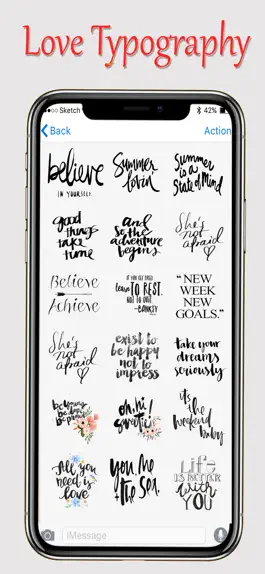 Love Typography
Sketch 42%
Back Action
believe
IN YOURSELF
Summer
lovin
Summer
is a
State of Mind
good
things
take
time
and
so the
adventure
begins
She's
not
afraid
Believe
Achieve
IF YOU GET TIRED
learn TO REST,
NOT TO QUIT
-BANKSY
"NEW
WEEK
NEW
GOALS."
She's
not
afraid
exist to
be happy
not to
impress
take your
dreams
seriously
be young
be dope
be proud
oh, hi!
sweetie
it's
the
weekend
baby
All you
need is
love
you, me
& the sea.
Life
IS BETTER
with
YOU
iMessage